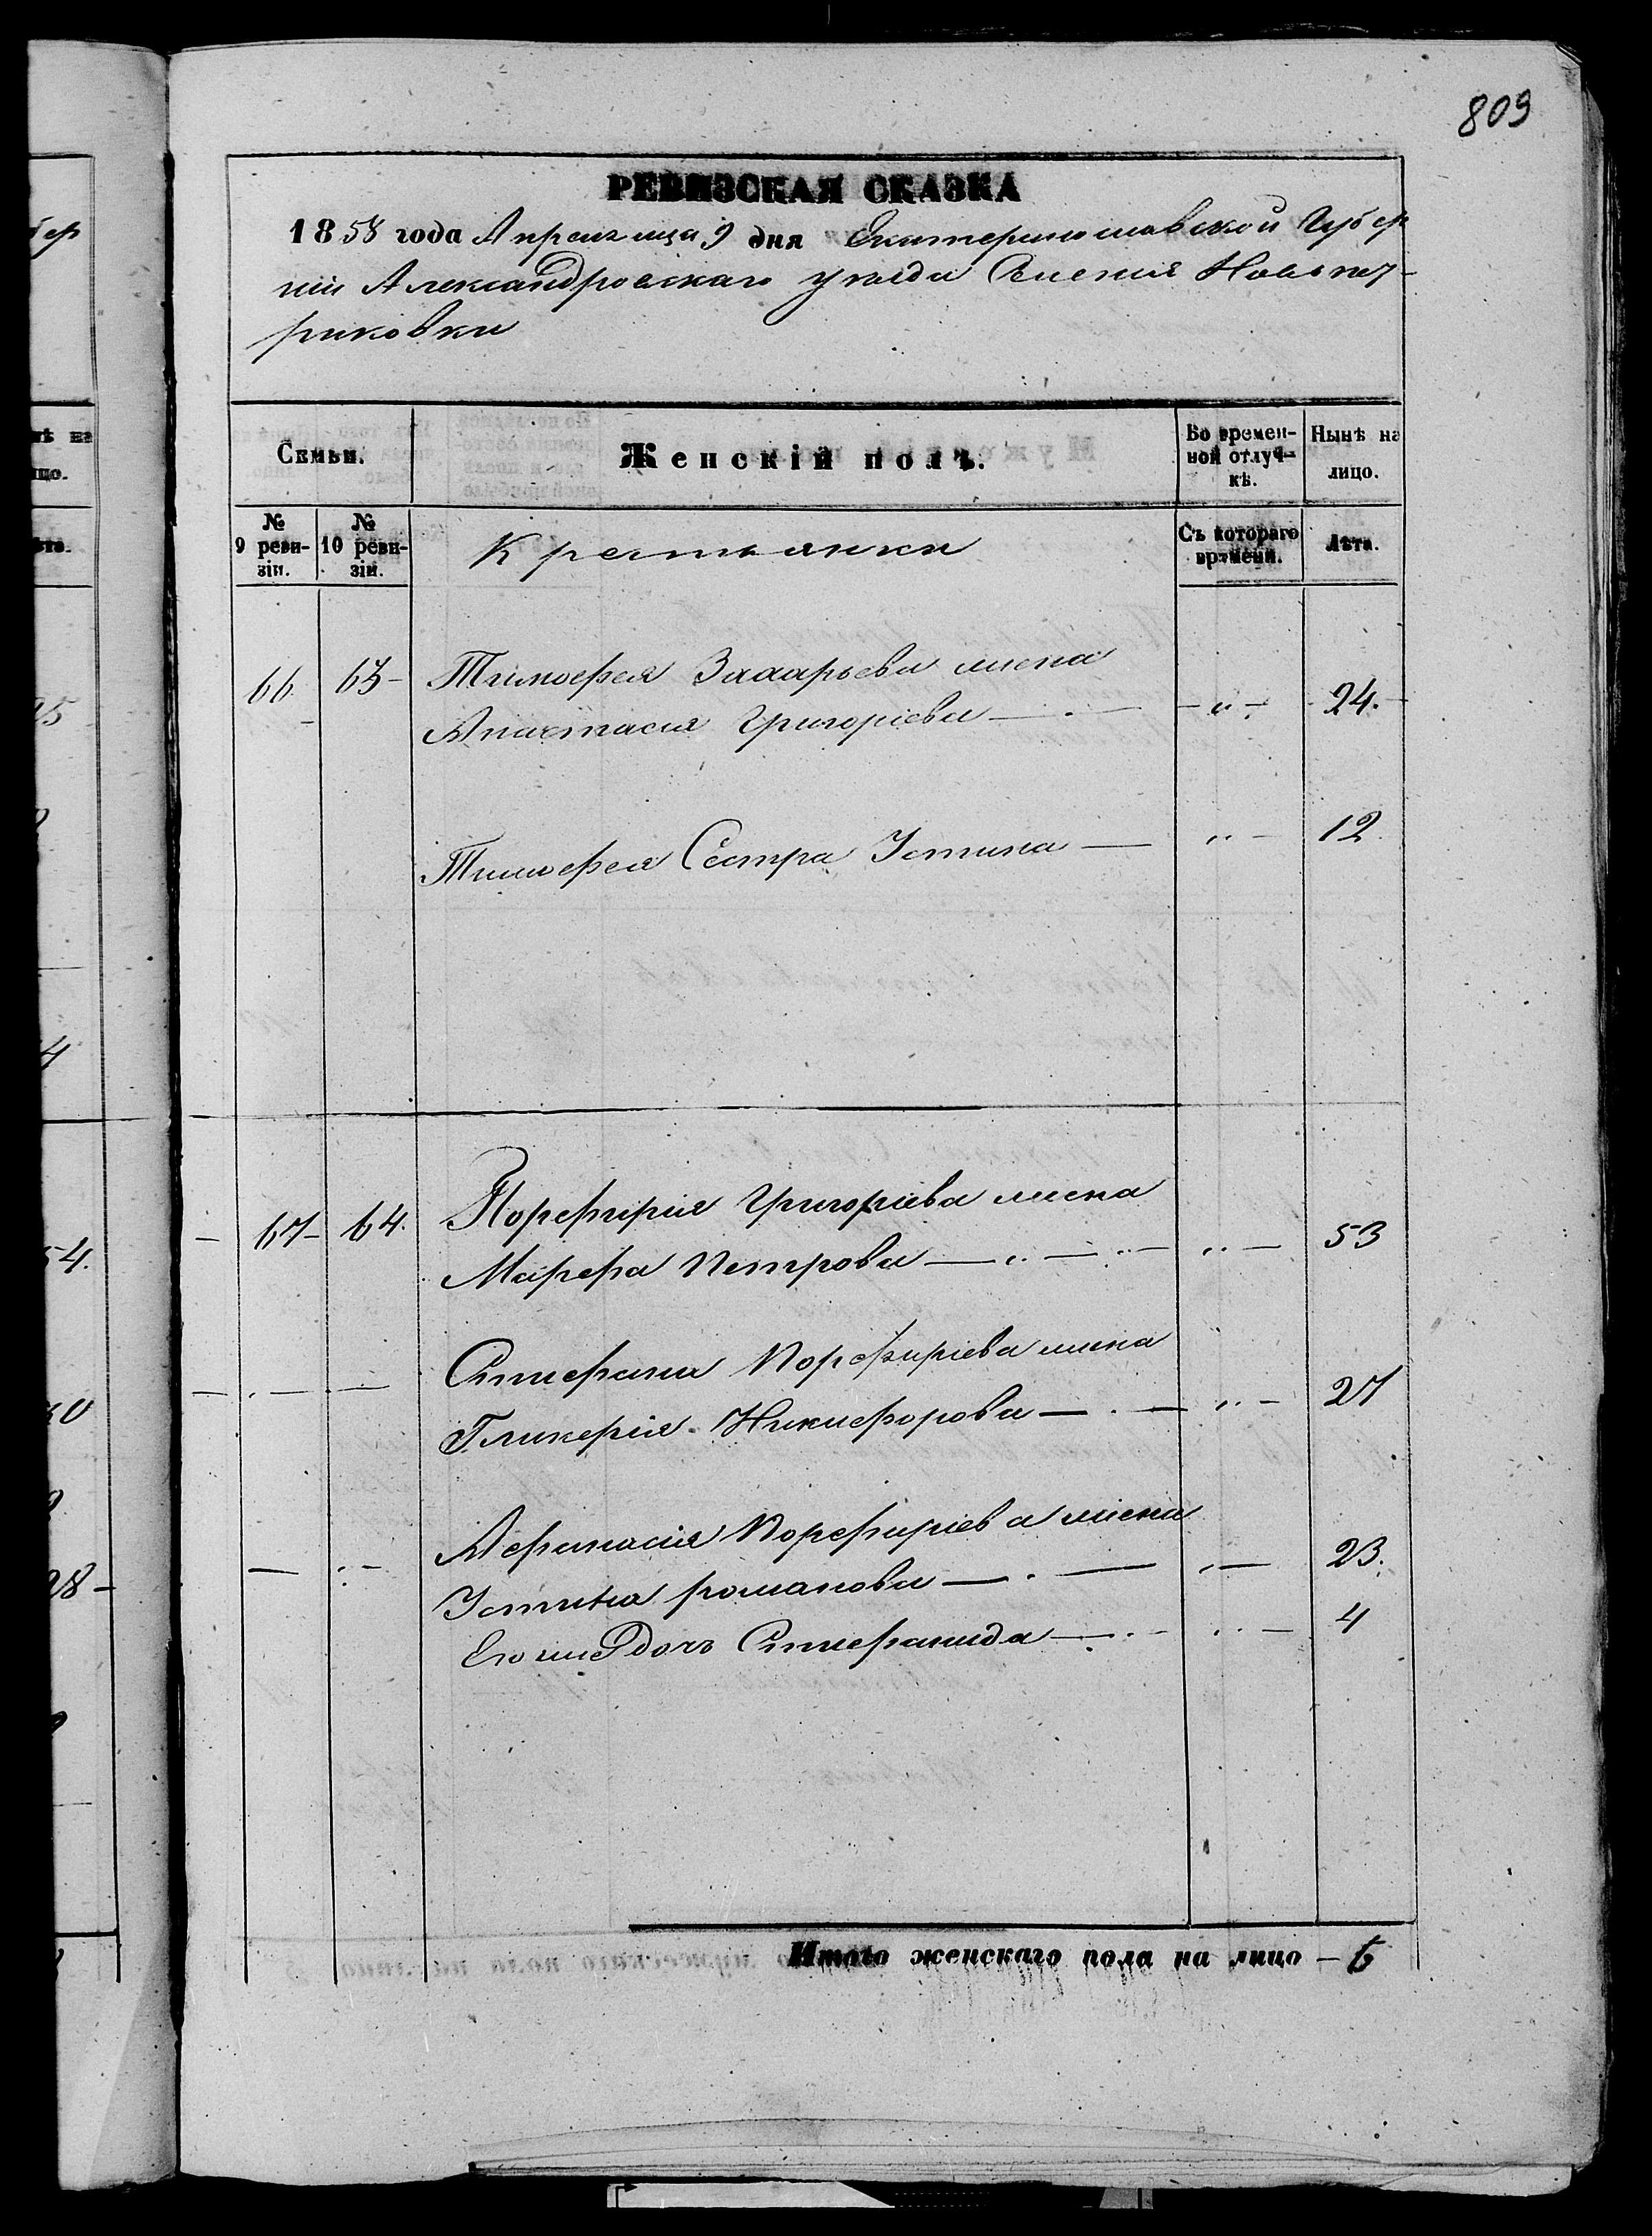 809
РЕВИЗСКАЯ СКАЗКА
1858 года Апреля мца 9 дня Екатеринославской Губер
ніи Александровскаго уѣзда Селенія Новопет-
риковки
Семьи. Женскій полъ. Во времен-ной отлуч-кѣ. Нынѣ на лицо.
№ 9 реви-зіи. № 10 реви-зіи. Крестьянки Съ котораго времени. Лѣта.
66 63 Тимофея Захарьева жена
Анастасія Григоріева — " — 24.
Тимофея Сестра Устина — " — 12
67 64. Порфирія Григоріева жена
Марфа Петрова — " — " — " — 53
Стефана Порфиріева жена
Гликерія Никифорова — " — 27
Афанасія Порфиріева жена
Устина романова — 23.
Его же дочь Стефанида — " — 4
Итого женскаго пола на лицо — 6